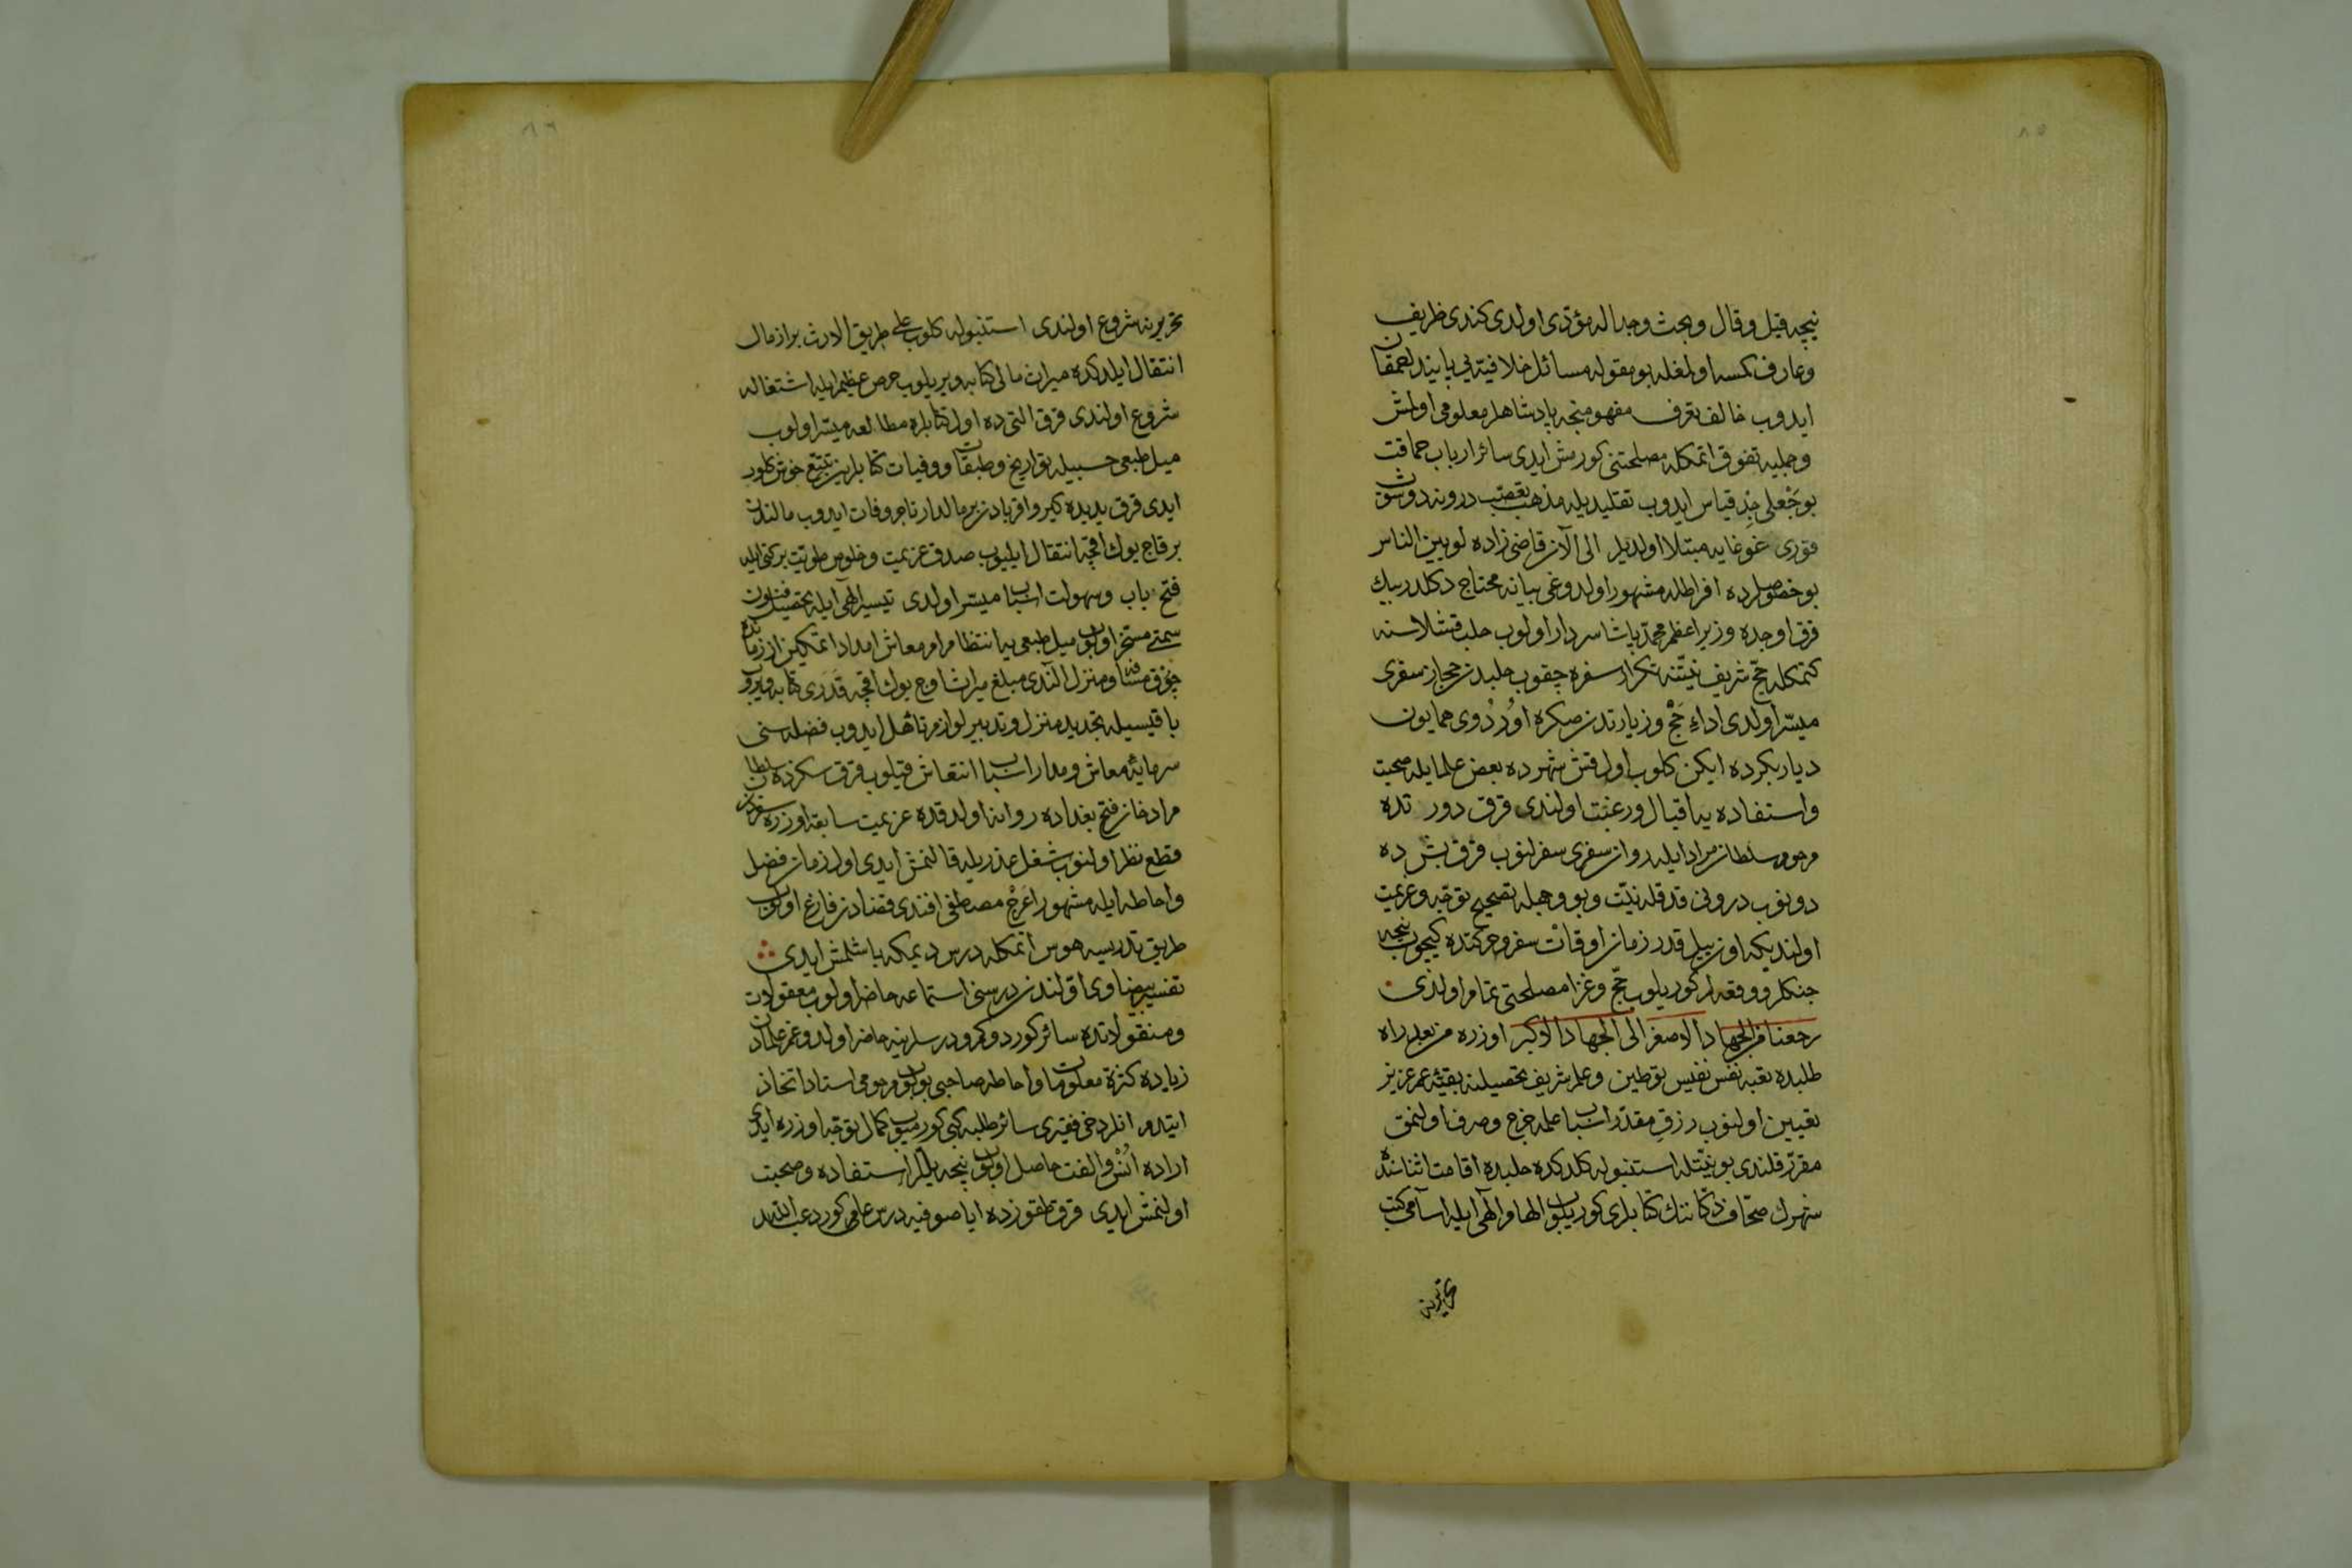 ٨٥
نیچه قیل و قال و بحث و جداله مؤدی اولدی کندی ظریف
و عارف کمسه اولمغله بو مقوله مسائل خلافیه‌یی بابنده لحمقان
ایدوب خالف تعرف مفهومنجه پادشاهلر معلومی اولمش
و جمله‌یه تفوق اتمکله مصلحتنی کورمش ایدی سائر ارباب حماقت
بو جعلی جد قیاس ایدوب تقلید یله مذهب تعصب درونه دوشوب
قوری غوغایه مبتلا اولدیلر الی الآن قاضی زاده لو بین الناس
بو خصوصلرده افراطله مشهور اولدوغی بیانه محتاج دکلدر بیک
قرق اوچده وزیر اعظم محمد پاشا سردار اولوب حلب قشلاسنه
کتمکله حج شریف نیتنه تکرار سفره چقوب حلبدن حجاز سفری
میسر اولدی اداء حج و زیارتدن صکره اوردوی همایون
دیاربکرده ایکن کلوب اول قش شهرده بعض علما ایله صحبت
و استفاده‌یه اقبال و رغبت اولندی قرق دورتده
مرحوم سلطان مراد ایله روان سفری سفرلنوب قرق بشده
دونوب درونی قدقله نیت و بو وجهله تصحیح توجه و عزیمت
اولندیکه اون ییل قدر زمان اوقات سفر و حرکتده کیچوب نیجه
جنکلر و وقعه لر کوریلوب حج و غزا مصلحتی تمام اولندی
رجعنا من الجهاد الاصغر الی الجهاد الاکبر اوزره من بعد راه
طلبده تعبه نفس نفیس توطین و علم شریف تحصیلنه بقیۀ عمر عزیز
تعیین اولنوب رزق مقدر اسباب علمه خرج و صرف اولنمق
مقرر قلندی بو نیتله استنبوله کلدکده حلبده اقامت اثناسنده
شهرک صحاف دکاننک کتابلری کوریلوب الهام الهی ایله اسامی کتب
تحریرینه
٨٦
تحریرینه شروع اولندی استنبوله کلوب علی طریق الارث بر از مال
انتقال ایلدکده میراث مالی کتابه ویریلوب حرص عظیم ایله اشتغاله
شروع اولندی قرق التی‌ده اول کتابلره مطالعه میسر اولوب
میل طبعی حسبیله تواریخ و طبقات و وفیات کتابلرین تتبع خوش کلور
ایدی قرق یدیده کبیر و اقربادن بر مالدار تاجر وفات ایدوب مالندن
بر قاچ یوک اقچه انتقال ایلیوب صدق عزیمت و خلوص طویت برکتی ایله
فتح باب و سهولت اسباب میسر اولدی تیسیر الهی ایله تحصیل فنون
سمتی مستخر اولوب میل طبعی یه انتظام امر معاش امداد اتمکین از زمانده
چوق مسافه و منزل الندی مبلغ میراث اوچ یوک اقچه قدری کتابه ویروب
باقیسیله تجدید منزل و تدبیر لوازم تأهل ایدوب فضله سنی
سرمایۀ معاش و مدار اسباب انتعاش قیلوب قرق سکزده سلطان
مراد خان فتح بغداده روانه اولدقده عزیمت سابقه اوزره سفردن
قطع نظر اولنوب شغل عذریله قالنمش ایدی اول زمان فضل
و احاطه ایله مشهور اعرج مصطفی افندی قضادن فارغ اولوب
طریق تدریسه هوس اتمکله درس دیمکه باشلمش ایدی
تفسیر بیضاوی اولندن درسنی استماعه حاضر اولوب معقولات
و منقولاتده سائر کوردوکم و درسلرینه حاضر اولدوغم علمادن
زیاده کثرة معلومات و احاطه صاحبی بولوب مرحومی استاد اتخاذ
ایتدم انلر دخی فقیری سائر طلبه کبی کورمیوب کمال توجه اوزره ایدی
اراده انس و الفت حاصل اولوب نیجه ییللر استفاده و صحبت
اولنمش ایدی قرق طقوزده ایاصوفیه درس عامی کورد عبد الله